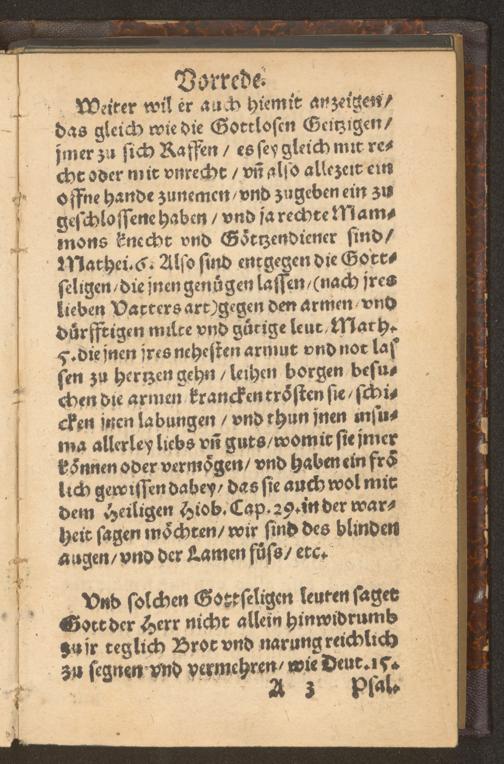 Vorrede.
Weiter wil er auch hiemit anzeigen/
das gleich wie die Gottlosen Geitzigen/
jmer zu sich Raffen / es sey gleich mit re⸗
cht oder mit vnrecht / vñ also allezeit ein
offne hande zunemen/vnd zugeben ein zu
geschlossene haben / vnd ja rechte Mam⸗
mons knecht vnd Göttzendiener sind/
Mathei.6. Also sind entgegen die Gott⸗
seligen/die jnen genügen lassen/(nach jres
lieben Vatters art)gegen den armen/vnd
dürfftigen milte vnd gütige leut/Math.
5.die jnen jres nehesten armut vnd not las
sen zu hertzen gehn / leihen borgen besu⸗
chen die armen krancken trösten sie/schi⸗
cken jnen labungen / vnd thun jnen insu⸗
ma allerley liebs vñ guts/womit sie jmer
können oder vermögen/ vnd haben ein frö
lich gewissen dabey/das sie auch wol mit
dem Heiligen Hiob. Cap.29.in der war⸗
heit sagen möchten/wir sind des blinden
augen/vnd der Lamen füss/etc.
Vnd solchen Gottseligen leuten saget
Gott der Herr nicht allein hinwidrumb
zu jr teglich Brot vnd narung reichlich
zu segnen vnd vermehren/wie Deut.15.
A 3 Psal.